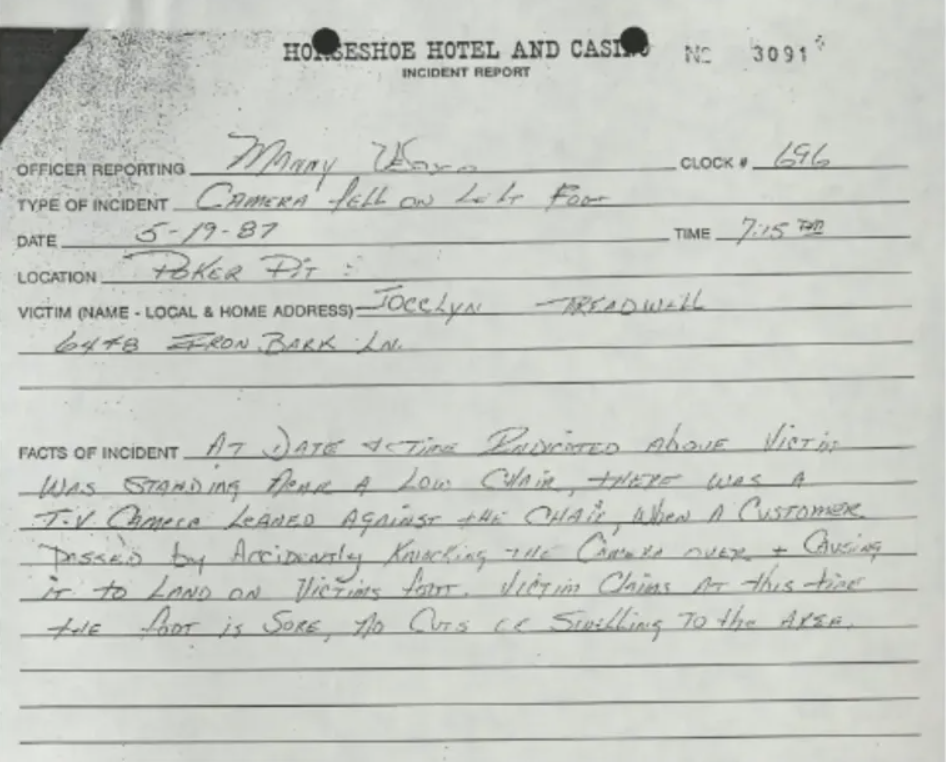 HORSESHOE HOTEL AND CASINO No 3091
INCIDENT REPORT
OFFICER REPORTING Manny CLOCK # 696
TYPE OF INCIDENT CAMERA fell ON Left Foot
DATE 5-19-87 TIME 7:15 PM
LOCATION POKER PIT
VICTIM (NAME - LOCAL & HOME ADDRESS) JOCELYN TREADWELL
6478 IRON BARK LN.
FACTS OF INCIDENT AT DATE & TIME INDICATED ABOVE VICTIM
WAS STANDING NEAR A LOW CHAIR, THERE WAS A
T.V CAMERA LEANED AGAINST THE CHAIR, WHEN A CUSTOMER
PASSED by Accidently KNOCKING THE CAMERA OVER + CAUSING
it TO LAND ON VICTIMS foot. VICTIM Claims AT this time
THE foot is SORE, NO CUTS or Swelling TO the AREA.